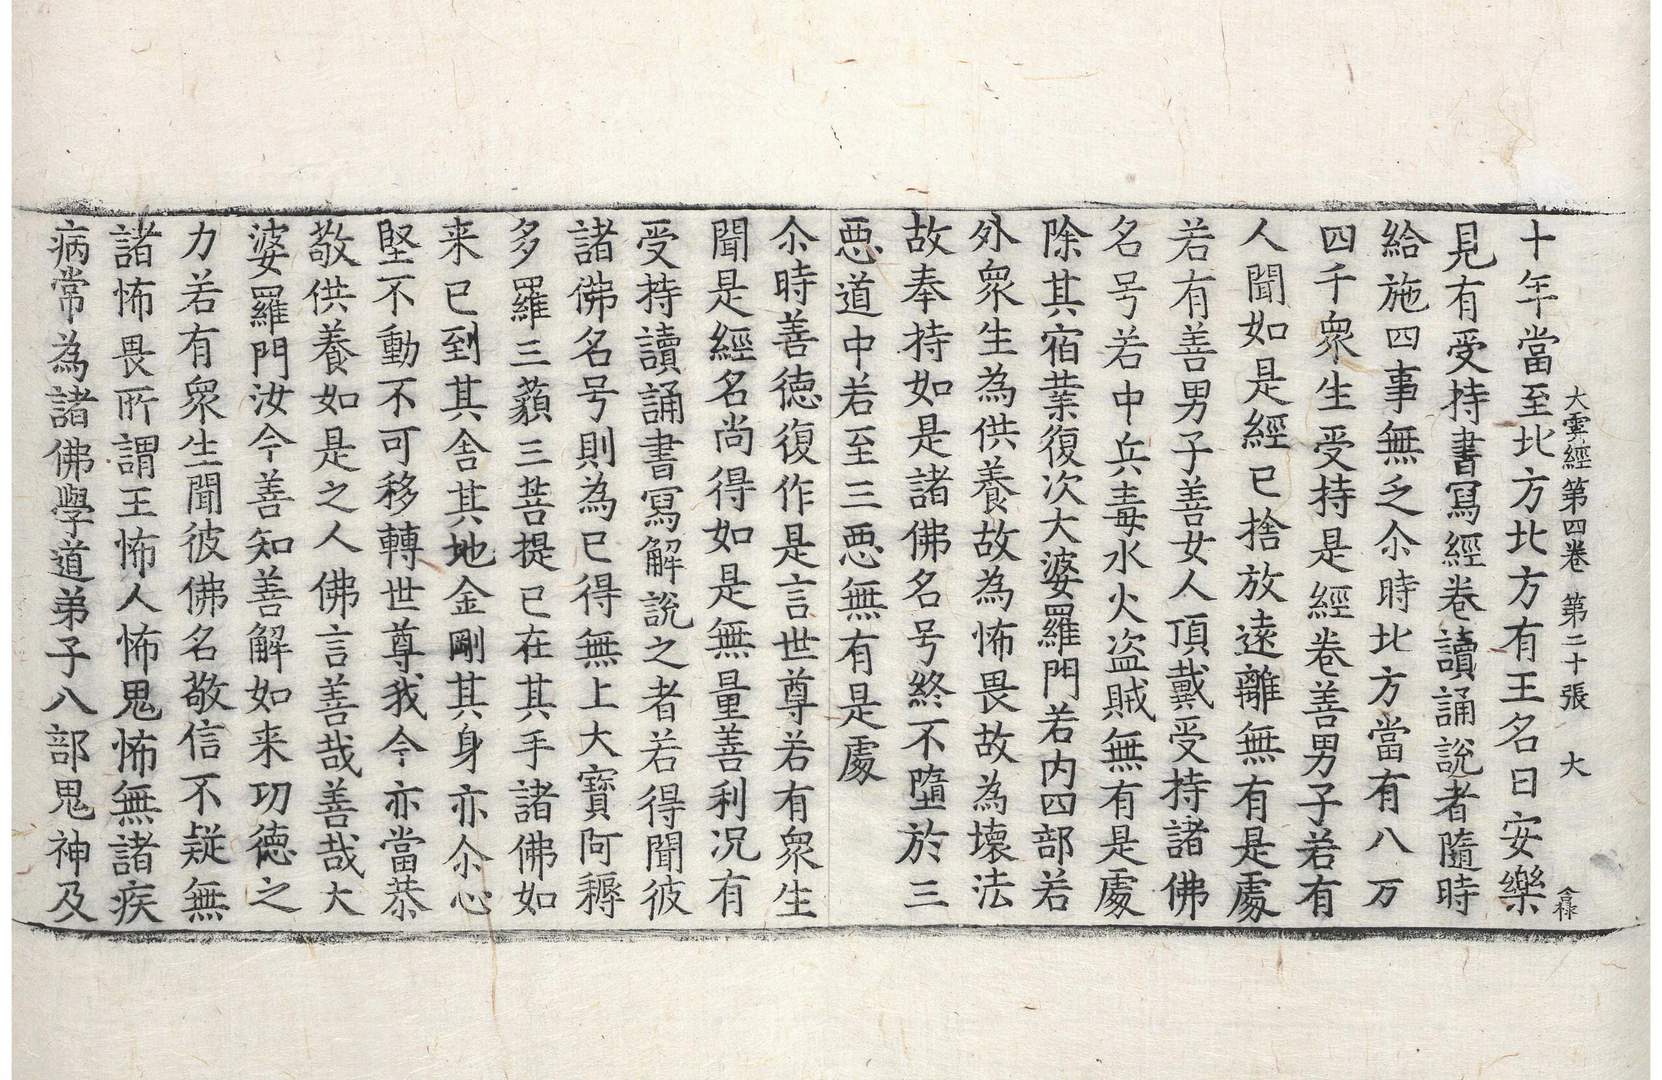 大雲經第四卷 第二十張 大
十年當至北方北方有王名曰安樂
見有受持書寫經卷讀誦說者隨時
給施四事無乏尒時北方當有八万
四千衆生受持是經卷善男子若有
人聞如是經已捨放遠離無有是處
若有善男子善女人頂戴受持諸佛
名号若中兵毒水火盜賊無有是處
除其宿業復次大婆羅門若内四部若
外衆生為供養故為怖畏故為壞法
故奉持如是諸佛名号終不墮於三
惡道中若至三惡無有是處
尒時善德復作是言世尊若有衆生
聞是經名尚得如是無量善利况有
受持讀誦書寫解說之者若得聞彼
諸佛名号則為已得無上大寶阿耨
多羅三藐三菩提已在其手諸佛如
来已到其舍其地金剛其身亦尒心
堅不動不可移轉世尊我今亦當恭
敬供養如是之人佛言善哉善哉大
婆羅門汝今善知善解如来功德之
力若有衆生聞彼佛名敬信不疑無
諸怖畏所謂王怖人怖鬼怖無諸疾
病常為諸佛學道弟子八部鬼神及